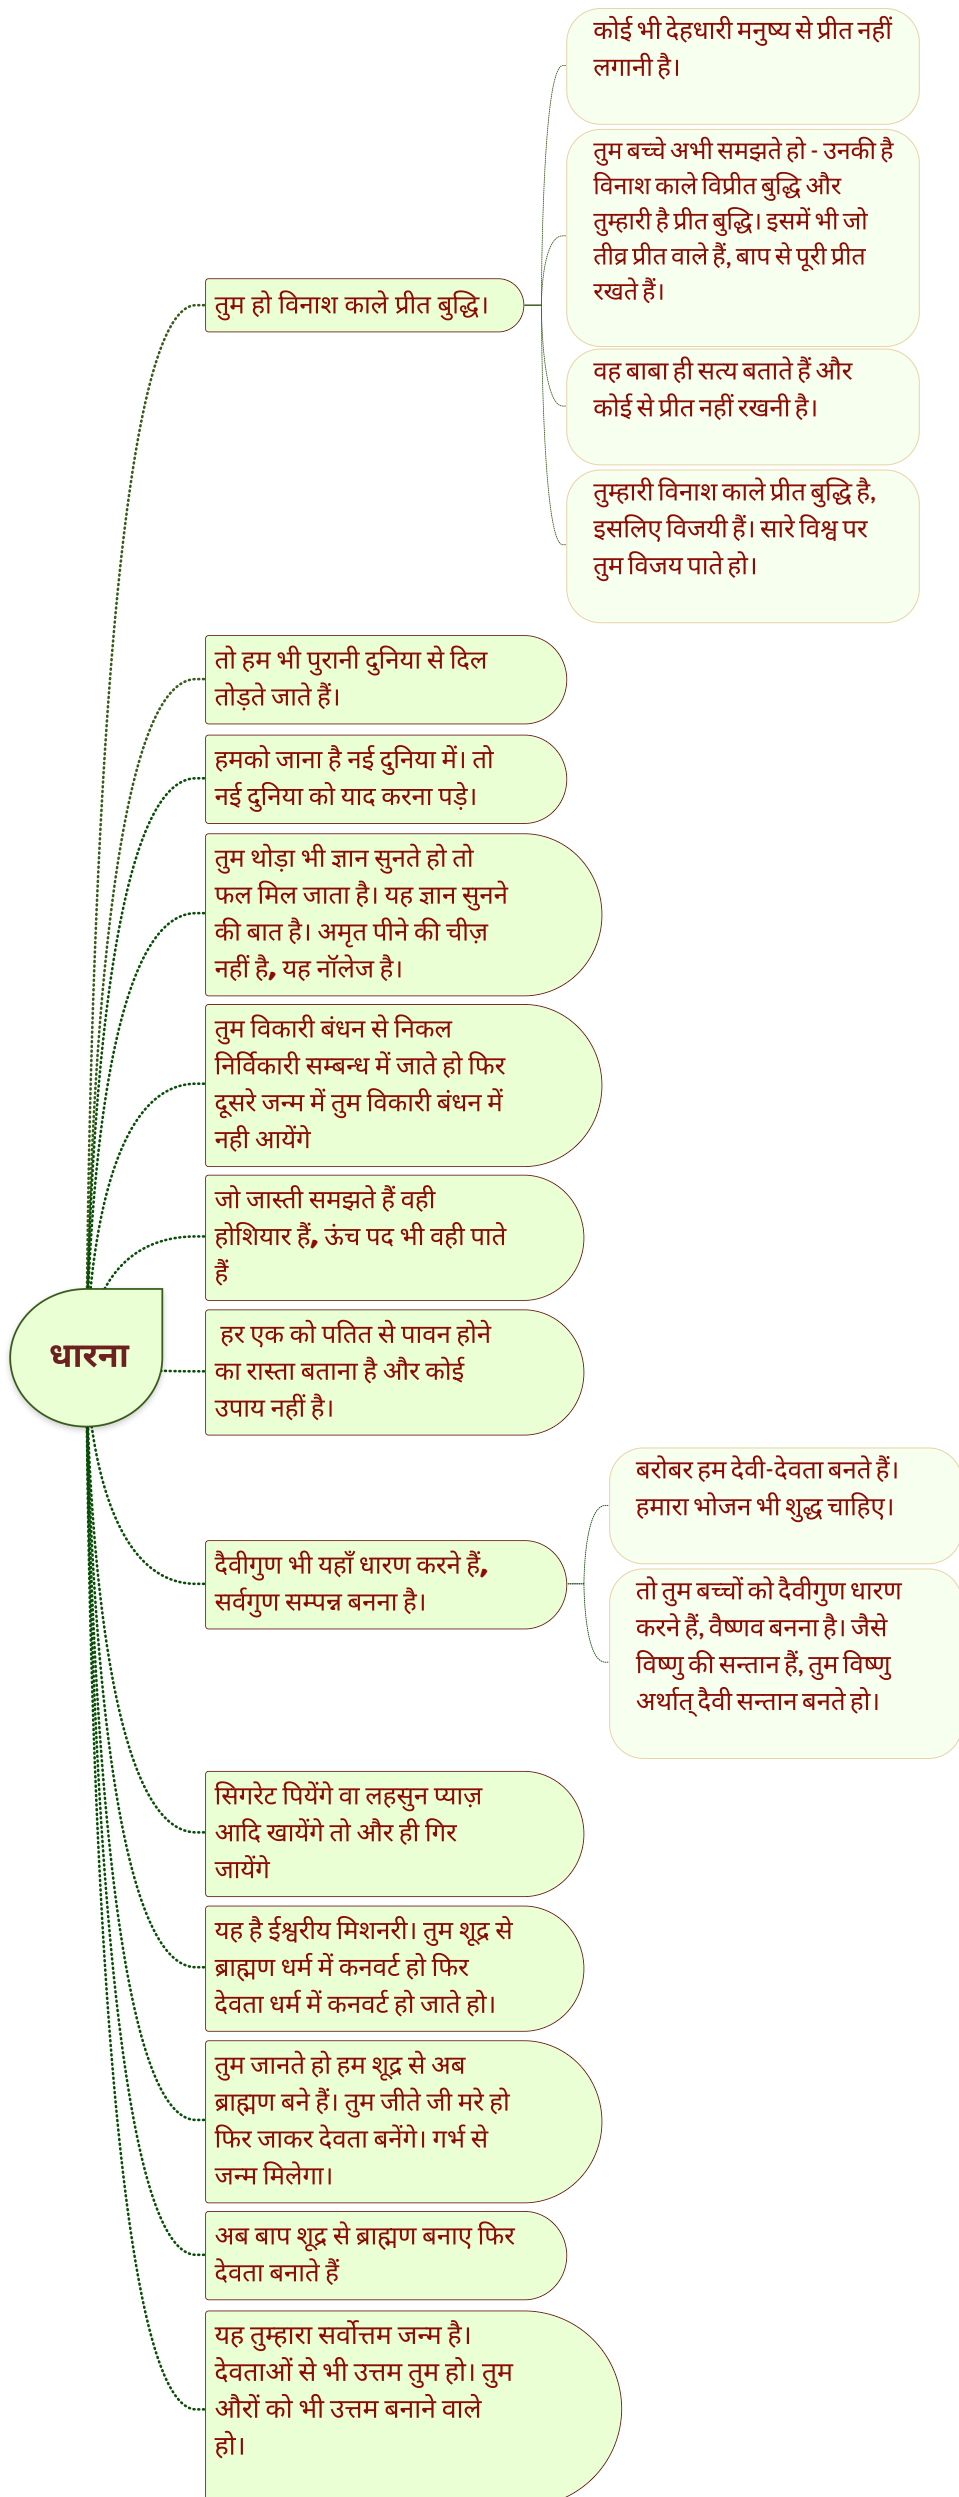 कोई भी देहधारी मनुष्य से प्रीत नहीं
लगानी है।
तुम बच्चे अभी समझते हो - उनकी है
विनाश काले विप्रीत बुद्धि और
तुम्हारी है प्रीत बुद्धि। इसमें भी जो
तीव्र प्रीत वाले हैं, बाप से पूरी प्रीत
रखते हैं।
तुम हो विनाश काले प्रीत बुद्धि।
वह बाबा ही सत्य बताते हैं और
कोई से प्रीत नहीं रखनी है।
तुम्हारी विनाश काले प्रीत बुद्धि है,
इसलिए विजयी हैं। सारे विश्व पर
तुम विजय पाते हो।
तो हम भी पुरानी दुनिया से दिल
तोड़ते जाते हैं।
हमको जाना है नई दुनिया में। तो
नई दुनिया को याद करना पड़े।
तुम थोड़ा भी ज्ञान सुनते हो तो
फल मिल जाता है। यह ज्ञान सुनने
की बात है। अमृत पीने की चीज़
नहीं है, यह नॉलेज है।
तुम विकारी बंधन से निकल
निर्विकारी सम्बन्ध में जाते हो फिर
दूसरे जन्म में तुम विकारी बंधन में
नही आयेंगे
जो जास्ती समझते हैं वही
होशियार हैं, ऊंच पद भी वही पाते
हैं
धारना
हर एक को पतित से पावन होने
का रास्ता बताना है और कोई
उपाय नहीं है।
बरोबर हम देवी-देवता बनते हैं।
हमारा भोजन भी शुद्ध चाहिए।
दैवीगुण भी यहाँ धारण करने हैं,
सर्वगुण सम्पन्न बनना है।
तो तुम बच्चों को दैवीगुण धारण
करने हैं, वैष्णव बनना है। जैसे
विष्णु की सन्तान हैं, तुम विष्णु
अर्थात् दैवी सन्तान बनते हो।
सिगरेट पियेंगे वा लहसुन प्याज़
आदि खायेंगे तो और ही गिर
जायेंगे
यह है ईश्वरीय मिशनरी। तुम शूद्र से
ब्राह्मण धर्म में कनवर्ट हो फिर
देवता धर्म में कनवर्ट हो जाते हो।
तुम जानते हो हम शूद्र से अब
ब्राह्मण बने हैं। तुम जीते जी मरे हो
फिर जाकर देवता बनेंगे। गर्भ से
जन्म मिलेगा।
अब बाप शूद्र से ब्राह्मण बनाए फिर
देवता बनाते हैं
यह तुम्हारा सर्वोत्तम जन्म है।
देवताओं से भी उत्तम तुम हो। तुम
औरों को भी उत्तम बनाने वाले
हो।